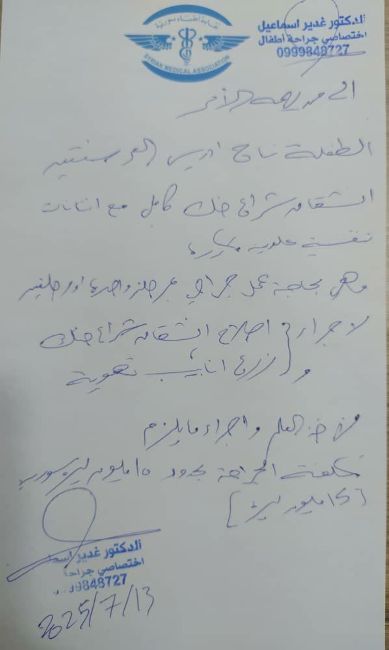 نقابة أطباء سورية
SYRIAN MEDICAL ASSOCIATION
الدكتور غدير اسماعيل
اختصاصي جراحة أطفال
0999848727
الى من يهمه الأمر
الطفلة تاج ادريس العمر سنتين
انشقاق شراع حنك كامل مع انتانات
تنفسية علوية متكررة
وهي بحاجة عمل جراحي مرحلة واحدة او مرحلتين
لاجراء اصلاح انشقاق شراع حنك
و زرع انابيب تهوية
يرجى العلم واجراء مايلزم
تكلفة الجراحة بحدود ١٥ مليون ليرة سورية
[١٥ مليون ليرة]
الدكتور غدير اسما
اختصاصي جراحة
99848727
2025/7/13